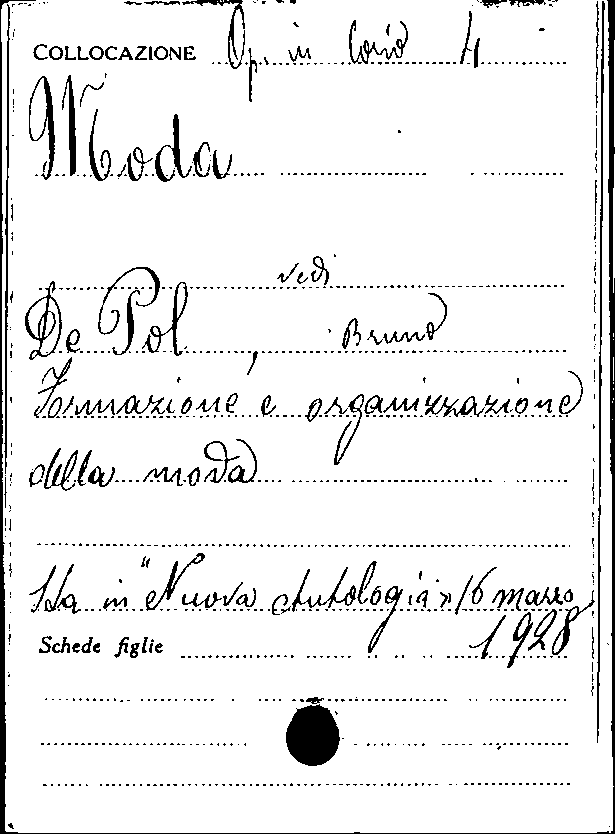 COLLOCAZIONE Op. in Corso 4
Moda
vedi
De Pol, Bruno
Formazione e organizzazione
della moda
Sta in "Nuova Antologia" 16 marzo
1928
Schede figlie